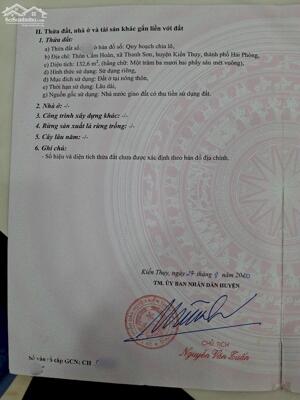 II. Thửa đất, nhà ở và tài sản khác gắn liền với đất
1. Thửa đất:
a) Thửa đất số: ô bản đồ số: Quy hoạch chia lô,
b) Địa chỉ: Thôn Cẩm Hoàn, xã Thanh Sơn, huyện Kiến Thụy, thành phố Hải Phòng,
c) Diện tích: 132,6 m², (bằng chữ: Một trăm ba mươi hai phẩy sáu mét vuông),
d) Hình thức sử dụng: Sử dụng riêng,
đ) Mục đích sử dụng: Đất ở tại nông thôn,
e) Thời hạn sử dụng: Lâu dài,
g) Nguồn gốc sử dụng: Nhà nước giao đất có thu tiền sử dụng đất.
2. Nhà ở: -/-
3. Công trình xây dựng khác: -/-
4. Rừng sản xuất là rừng trồng: -/-
5. Cây lâu năm: -/-
6. Ghi chú:
- Số hiệu và diện tích thửa đất chưa được xác định theo bản đồ địa chính.
Kiến Thụy, ngày tháng 9 năm
TM. ỦY BAN NHÂN DÂN HUYỆN
CHỦ TỊCH
Nguyễn Văn Tuấn
Số vào sổ cấp GCN: CH